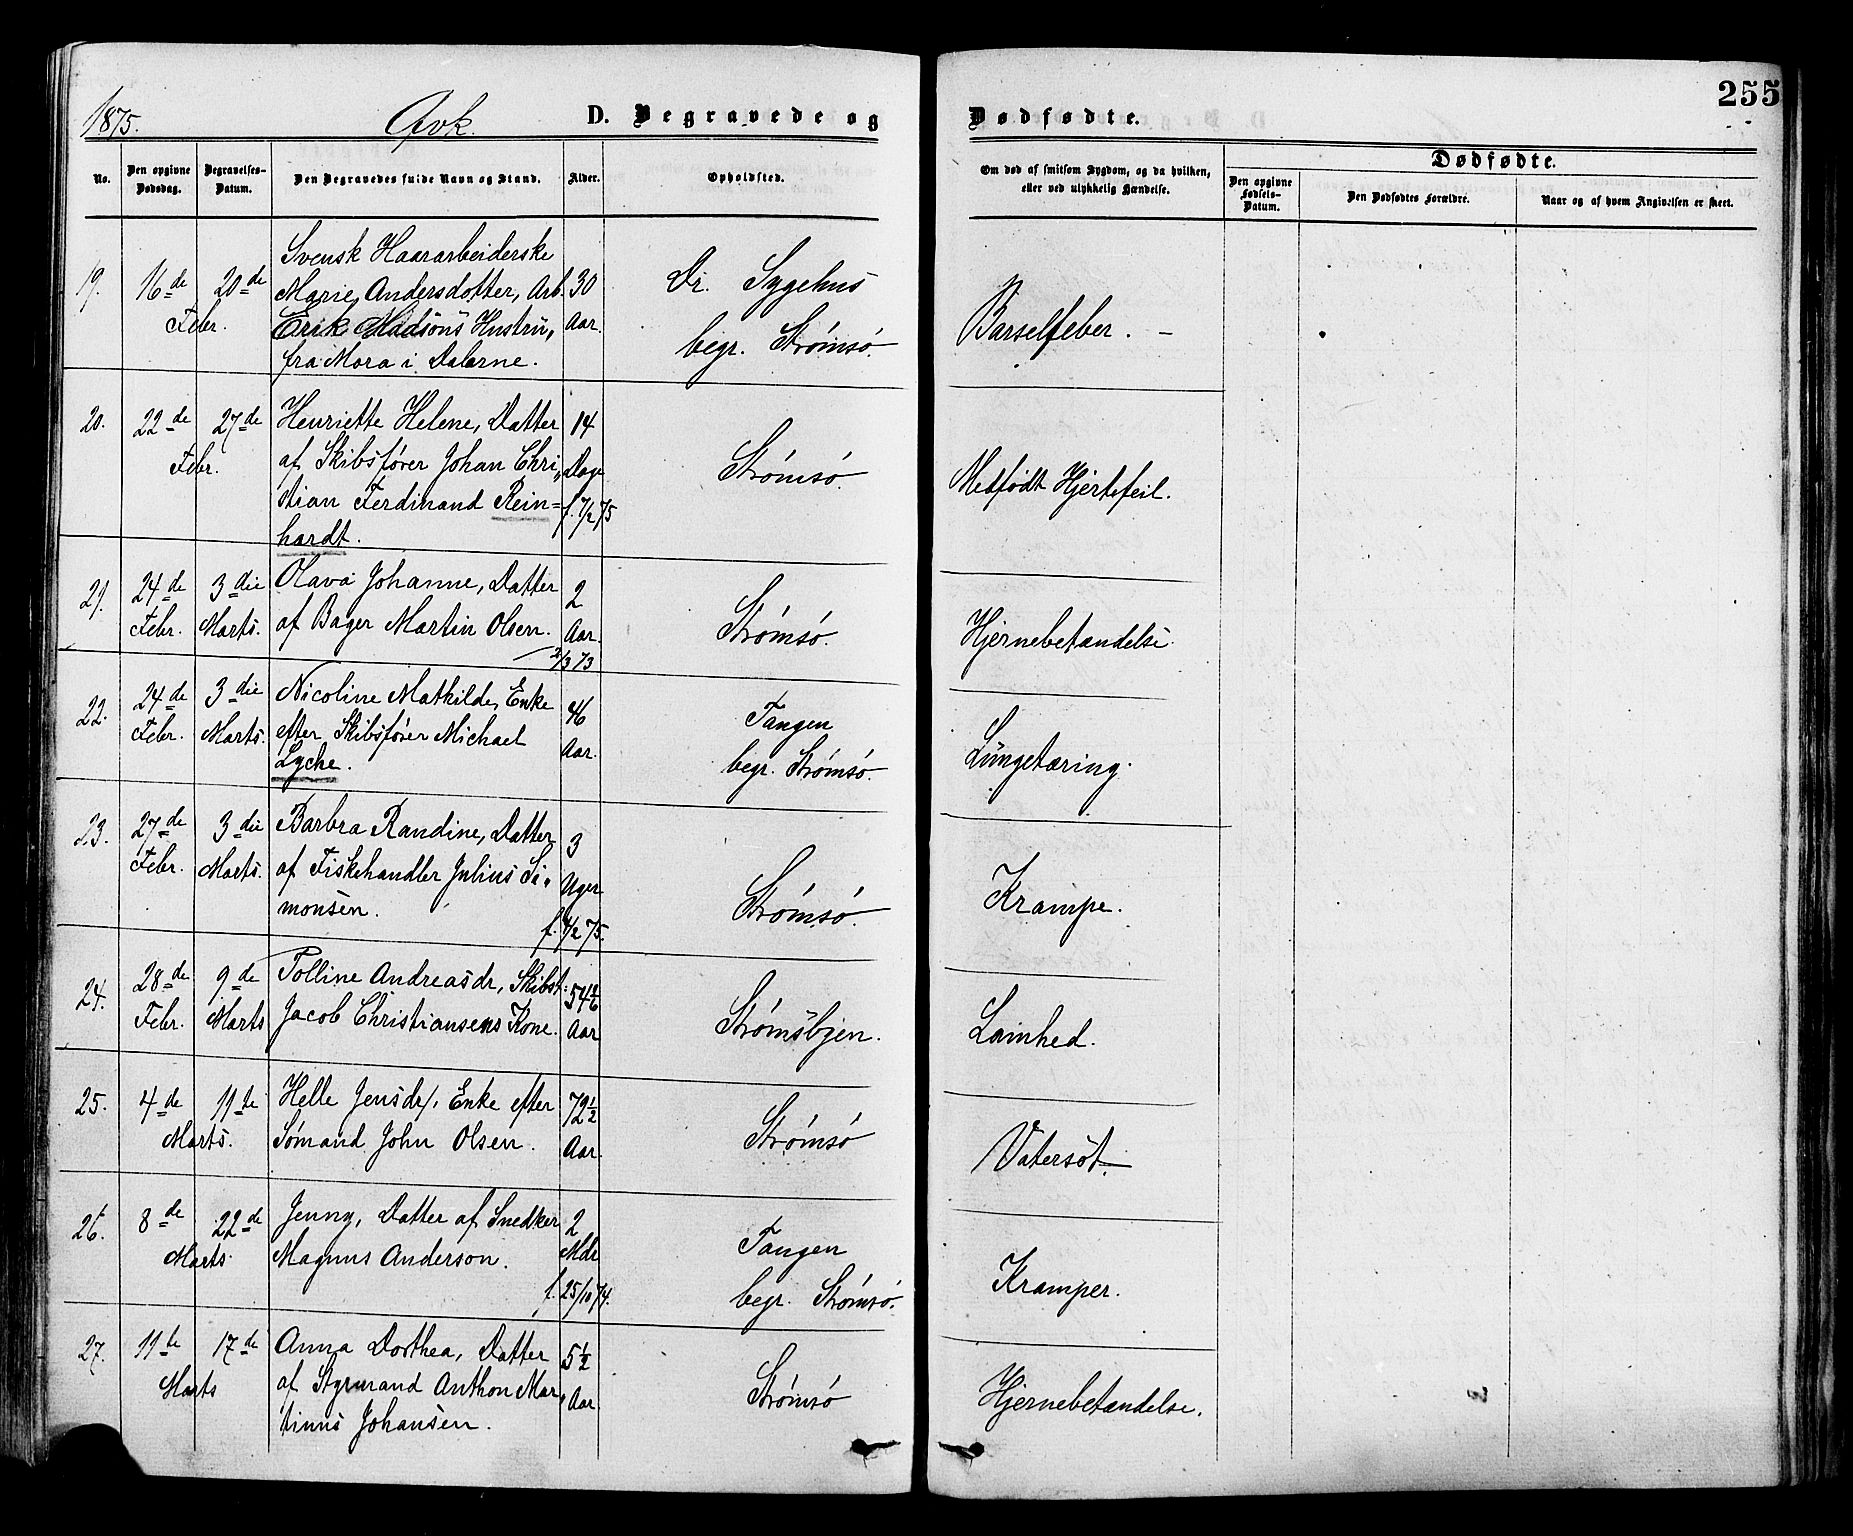 255
1875.
Qvk.
D. Begravede og
Dødfødte.
No.
Den opgivne
Dødsdag.
Begravelses-
Datum.
Den Begravedes fulde Navn og Stand.
Alder.
Opholdsted.
Om død af smitsom Sygdom, og da hvilken,
eller ved ulykkelig Hændelse.
Dødfødte.
Den opgivne
Fødsels-
Datum.
Den Dødfødtes Forældre.
Naar og af hvem Angivelsen er skeet.
19.
16de
20de
Febr.
Svensk Haararbeiderske
Marie Andersdotter, Arb.
Erik Madsöns Hustru,
fra Mora i Dalerne.
30
Aar.
Dr. Sygehus
begr. Strømsø.
Barselfeber. –
20.
22de
27de
Febr.
Henriette Helene, Datter
af Skibsfører Johan Chri-
stian Ferdinand Rein=
hardt.
14
Dage
f. 7/2 75
Strømsø.
Medfødt Hjertefeil.
21.
24de
Febr.
3die
Marts.
Olava Johanne, Datter
af Bager Martin Olsen.
2
Aar.
2/3 73
Strømsø.
Hjernebetændelse.
22.
24de
Febr.
3die
Marts.
Nicoline Mathilde, Enke
efter Skibsfører Michael
Lyche.
46
Aar.
Tangen
begr. Strømsø.
Lungetæring.
23.
27de
Febr.
3die
Marts.
Barbra Randine, Datter
af Fiskehandler Julius Si-
monsen.
3
Uger
f. 4/2 75.
Strømsø.
Krampe.
24.
28de
Febr.
9de
Marts
Tolline Andreasdr, Skibst.
Jacob Christiansens Kone.
54
Aar
Strømsbyen.
Lamhed.
25.
4de
11te
Marts.
Helle Jensdr, Enke efter
Sømand John Olsen.
72 1/2
Aar.
Strømsø
Vatersot.
26.
8de
22de
Marts.
Jenny, Datter af Snedker
Magnus Anderson.
2
Mdr
f. 25/10 74.
Tangen
begr. Strømsø.
Kramper.
27.
11te
17de
Marts
Anna Dorthea, Datter
af Styrmand Anthon Mar-
tinus Johansen.
5 1/2
Aar.
Strømsø
Hjernebetændelse.